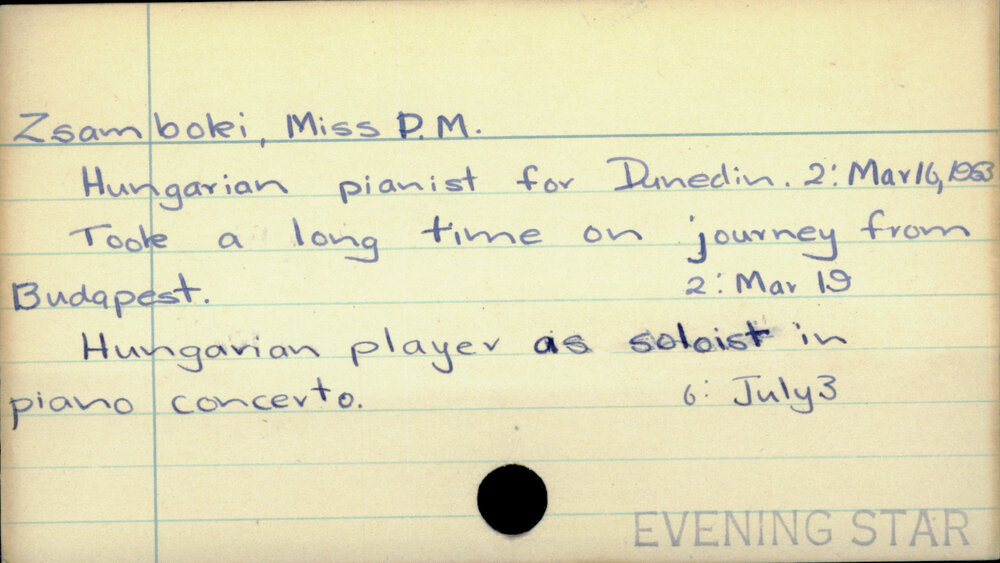 Zsamboki, Miss P.M.
Hungarian pianist for Dunedin. 2: Mar 16, 1963
Took a long time on journey from
Budapest. 2: Mar 19
Hungarian player as soloist in
piano concerto. 6: July 3
EVENING STAR